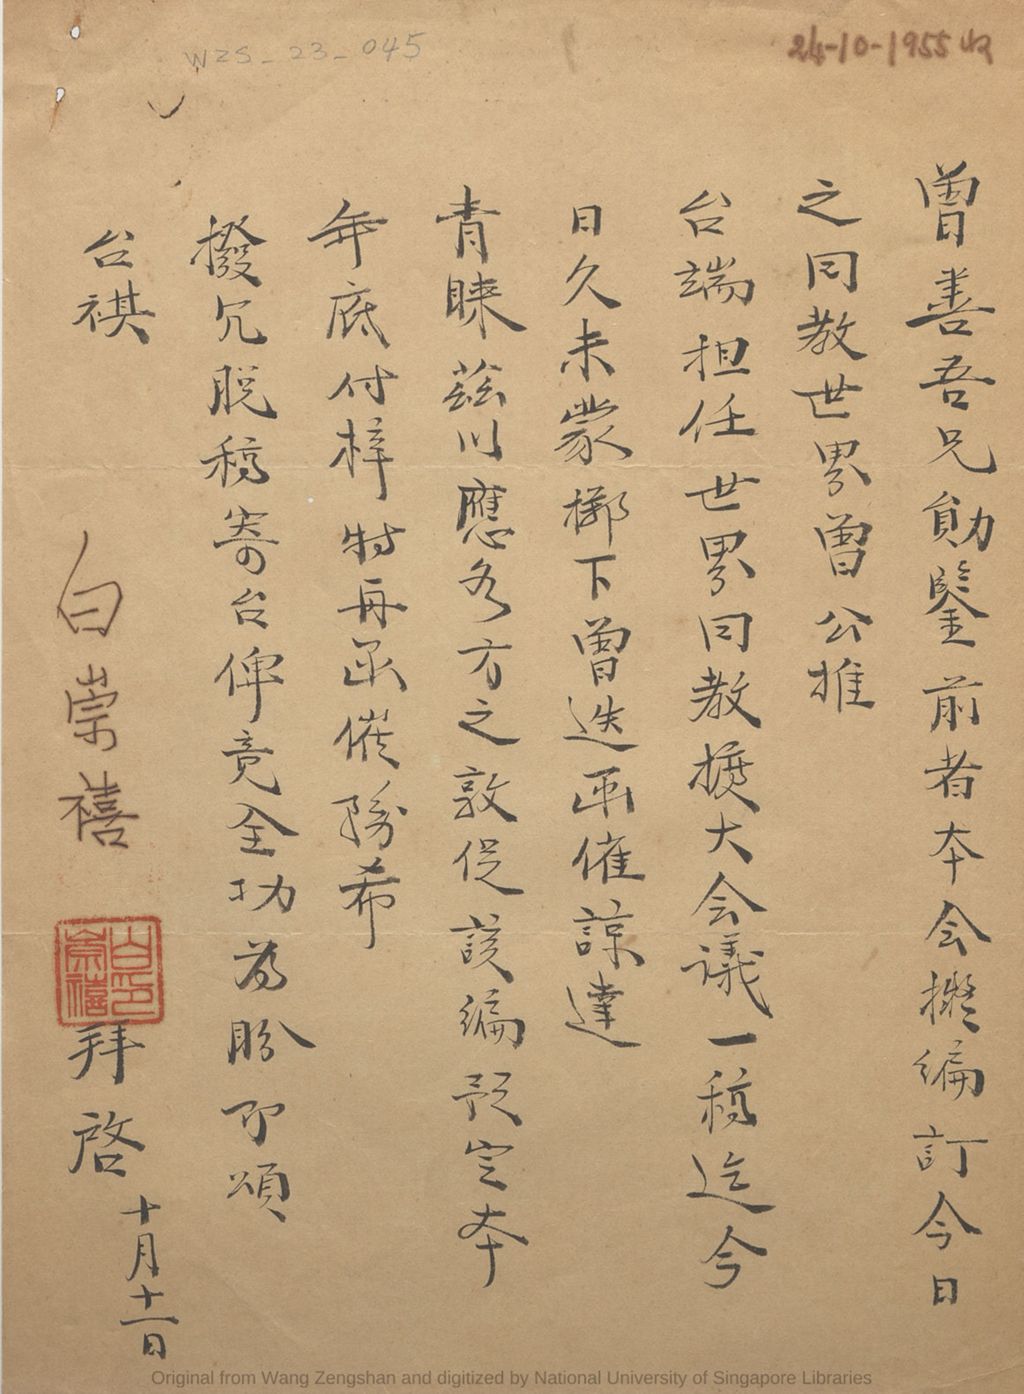 WZS_23_045
24-10-1955收
曾善吾兄勛鑒前者本会擬編訂今日
之囘教世界曾公推
台端担任世界囘教擴大会議一稿迄今
日久未蒙擲下曾迭函催諒達
青睞茲以應各方之敦促該編預定本
年底付梓特再函催務希
撥冗脱稿寄台俾竟全功為盼耑頌
台祺
白崇禧
白崇禧印
拜啓
十月十一日
Original from Wang Zengshan and digitized by National University of Singapore Libraries